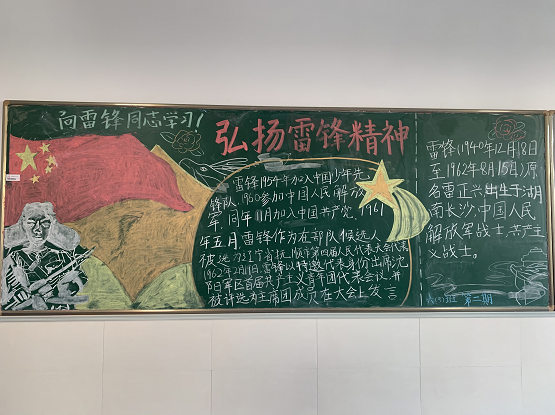 向雷锋同志学习!
弘扬雷锋精神
雷锋1954年加入中国少年先
锋队,1960参加中国人民解放
军,同年11月加入中国共产党,1961
年五月,雷锋作为在部队候选人
被选为辽宁省抚顺市第四届人民代表大会代表
1962年2月19日,雷锋以特邀代表身份出席沈
阳军区首届共产主义青年团代表会议,并
被评选为主席团成员在大会上发言
雷锋(1940年12月18日
至1962年8月15日)原
名雷正兴出生于湖
南长沙,中国人民
解放军战士,共产主
义战士。
第二期